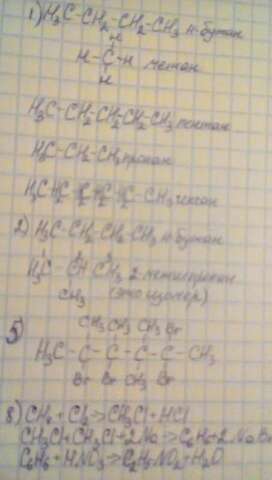 1) H₃C-CH₂-CH₂-CH₃ н-бутан
H
H-C-H метан
H
H₃C-CH₂-CH₂-CH₂-CH₃ пентан
H₃C-CH₂-CH₃ пропан
H₃C-C-C-C-C-CH₃ гексан
2) H₃C-CH₂-CH₂-CH₃ н-бутан
H₃C-CH-CH₃ 2-метилпропан
CH₃ (это изомер)
5) CH₃ CH₃ CH₃ Br
H₃C-C-C-C-C-CH₃
Br Br CH₃ Br
8) CH₄ + Cl₂ → CH₃Cl + HCl
CH₃Cl + CH₃Cl + 2Na → C₂H₆ + 2Na
C₂H₆ + HNO₃ → C₂H₅NO₂ + H₂O